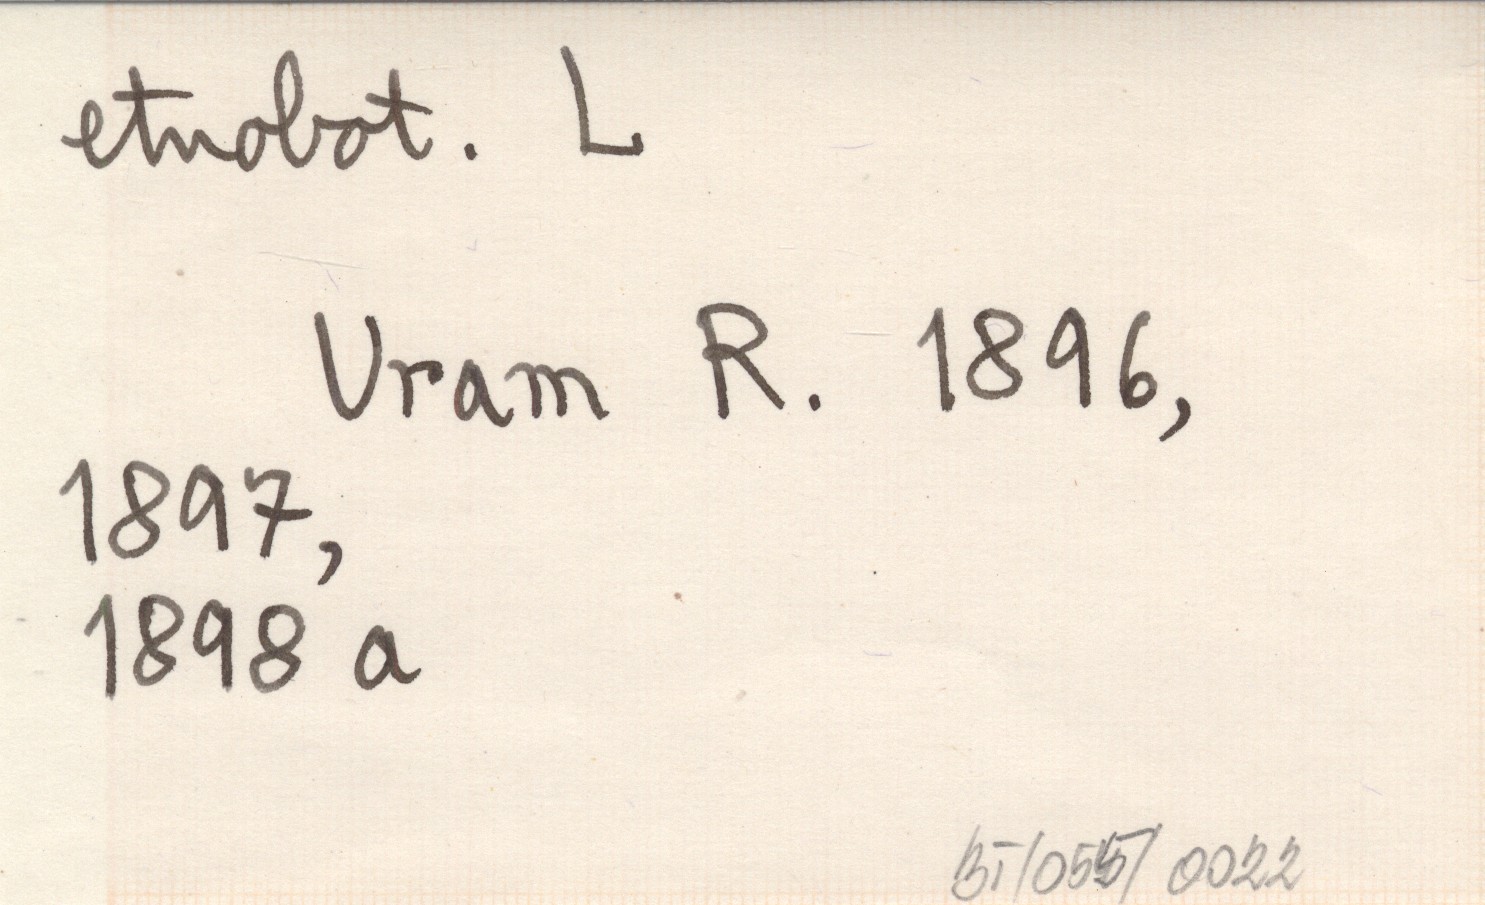 etnobot. L
Vram R. 1896,
1897,
1898 a
BI/055/0022